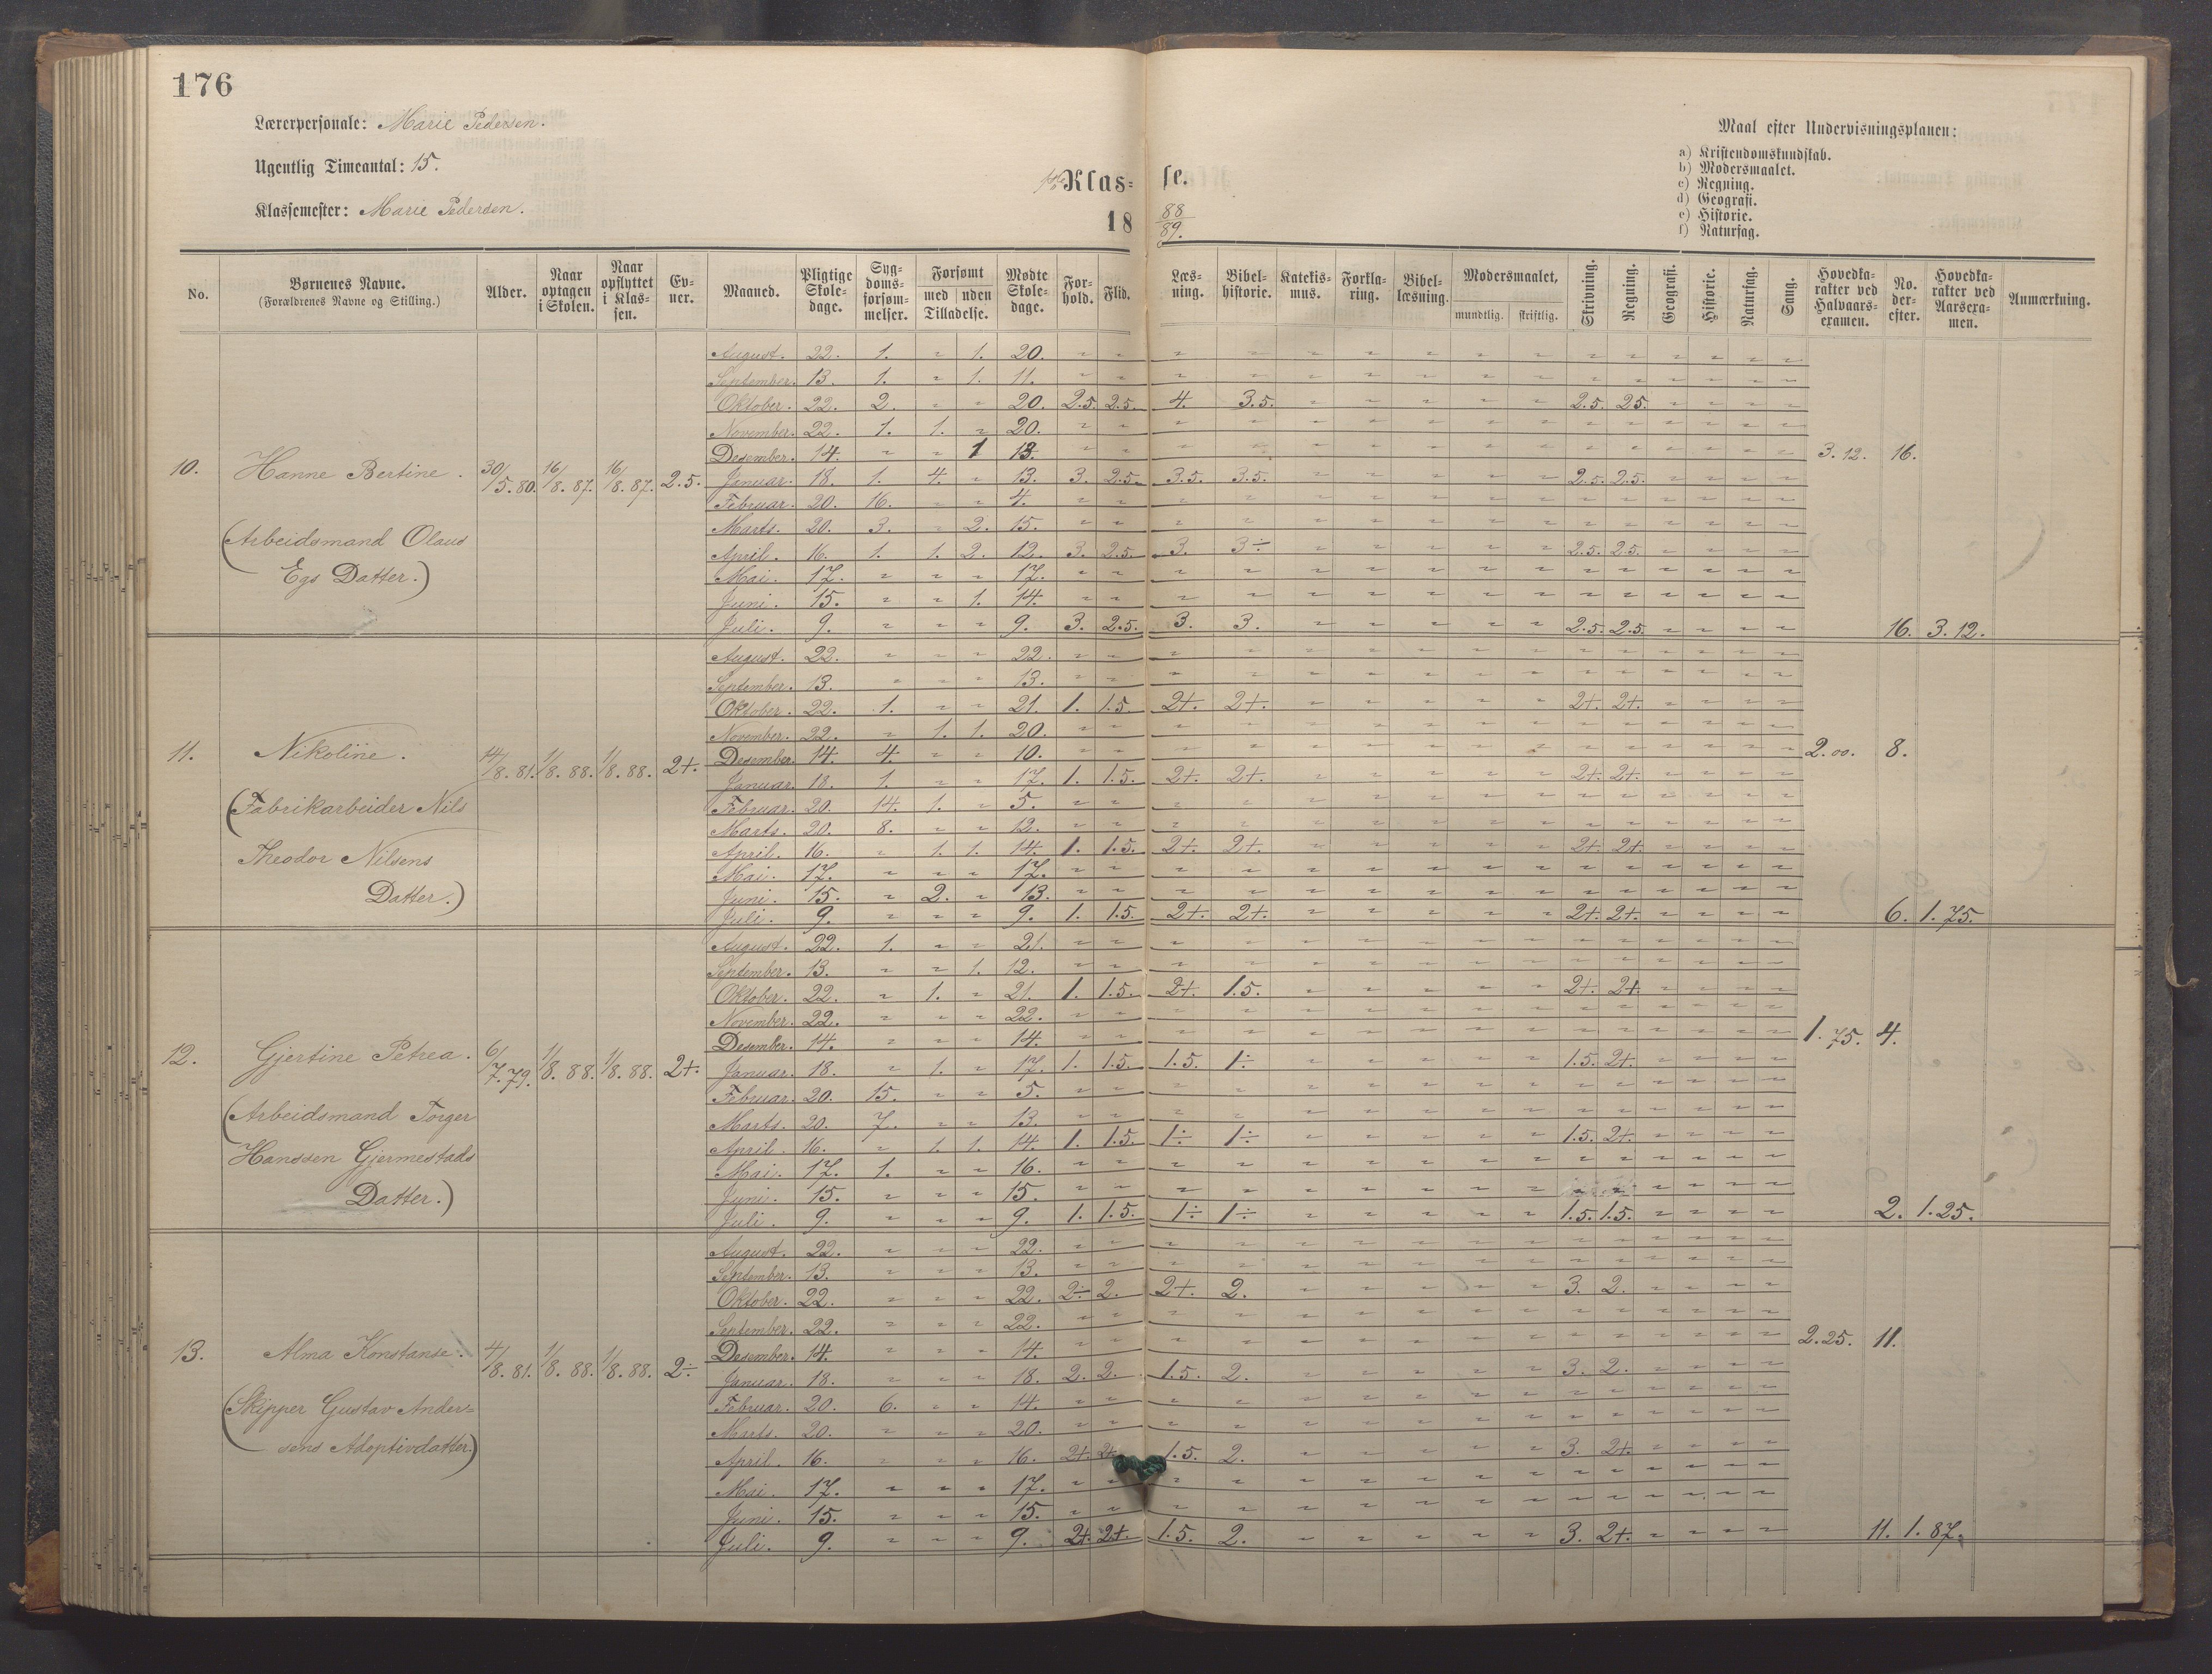 176
Lærerpersonale: Marie Pedersen.
Ugentlig Timeantal: 15.
Klassemester: Marie Pedersen.
1ste Klasse.
18 88/89.
Maal efter Undervisningsplanen:
a) Kristendomskundskab.
b) Modersmaalet.
c) Regning.
d) Geografi.
e) Historie.
f) Naturfag.
No. | Børnenes Navne. (Forældrenes Navne og Stilling.) | Alder. | Naar optagen i Skolen. | Naar opflyttet i Klassen. | Evner. | Maaned. | Pligtige Skoledage. | Sygdomsforsømmelser. | Forsømt med uden Tilladelse. | Mødte Skoledage. | Forhold. | Flid. | Læsning. | Bibelhistorie. | Katekismus. | Forklaring. | Bibellæsning. | Modersmaalet, mundtlig. skriftlig. | Skrivning. | Regning. | Geografi. | Historie. | Naturfag. | Sang. | Hovedkarakter ved Halvaarsexamen. | No. derefter. | Hovedkarakter ved Aarsexamen. | Anmærkning.
10. Hanne Bertine. 30/5.80. 16/8.87. 16/8.87. 2.5.
(Arbeidsmand Olaus
Egs Datter.)
August. 22. 1. " 1. 20.
September. 13. 1. " 1. 11.
Oktober. 22. 2. " " 20. 2.5. 2.5. 4. 3.5. 2.5. 2.5.
November. 22. 1. 1. " 20.
Desember. 14. " " 1 13. 3.12. 16.
Januar. 18. 1. 4. " 13. 3. 2.5. 3.5. 3.5. 2.5. 2.5.
Februar. 20. 16. " " 4.
Marts. 20. 3. " 2. 15.
April. 16. 1. 1. 2. 12. 3. 2.5. 3. 3÷ 2.5. 2.5.
Mai. 17. " " " 17.
Juni. 15. " " 1. 14.
Juli. 9. " " " 9. 3. 2.5. 3. 3. 2.5. 2.5. 16. 3.12.
11. Nikoline. 14/8.81. 1/8.88. 1/8.88. 2+.
(Fabrikarbeider Nils
Theodor Nilsens
Datter.)
August. 22. " " " 22.
September. 13. " " " 13.
Oktober. 22. 1. " " 21. 1. 1.5. 2+. 2+. 2+. 2+.
November. 22. " 1. 1. 20.
Desember. 14. 4. " " 10. 2.00. 8.
Januar. 18. 1. " " 17. 1. 1.5. 2+. 2+. 2+. 2+.
Februar. 20. 14. 1. " 5.
Marts. 20. 8. " " 12.
April. 16. " 1. 1. 14. 1. 1.5. 2+. 2+. 2+. 2+.
Mai. 17. " " " 17.
Juni. 15. " 2. " 13.
Juli. 9. " " " 9. 1. 1.5. 2+. 2+. 2+. 2+. 6. 1.75.
12. Gjertine Petrea. 6/7.79. 1/8.88. 1/8.88. 2+.
(Arbeidsmand Torger
Hanssen Gjermestads
Datter.)
August. 22. 1. " " 21.
September. 13. " " 1. 12.
Oktober. 22. " 1. " 21. 1. 1.5. 2+. 1.5. 2+. 2+.
November. 22. " " " 22.
Desember. 14. " " " 14. 1.75. 4.
Januar. 18. " 1. " 17. 1. 1.5. 1.5. 1÷ 1.5. 2+.
Februar. 20. 15. " " 5.
Marts. 20. 7. " " 13.
April. 16. " 1. 1. 14. 1. 1.5. 1÷ 1÷ 1.5. 2+.
Mai. 17. 1. " " 16.
Juni. 15. " " " 15.
Juli. 9. " " " 9. 1. 1.5. 1÷ 1÷ 1.5. 1.5. 2. 1.25.
13. Alma Konstanse. 4/8.81. 1/8.88. 1/8.88. 2÷
(Skipper Gustav Ander=
sens Adoptivdatter.)
August. 22. " " " 22.
September. 13. " " " 13.
Oktober. 22. " " " 22. 2÷ 2. 2+. 2. 3. 2.
September. 22. " " " 22.
Desember. 14. " " " 14. 2.25. 11.
Januar. 18. " " " 18. 2. 2. 1.5. 2. 3. 2.
Februar. 20. 6. " " 14.
Marts. 20. " " " 20.
April. 16. " " " 16. 2+. 2+. 1.5. 2. 3. 2+.
Mai. 17. " " " 17.
Juni. 15. " " " 15.
Juli. 9. " " " 9. 2+. 2+. 1.5. 2. 3. 2+. 11. 1.87.